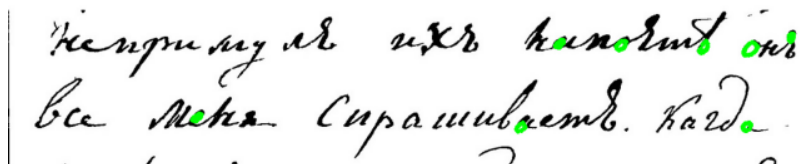 неприму лъ ихъ онъ
все меня спрашиваетъ. Кагда